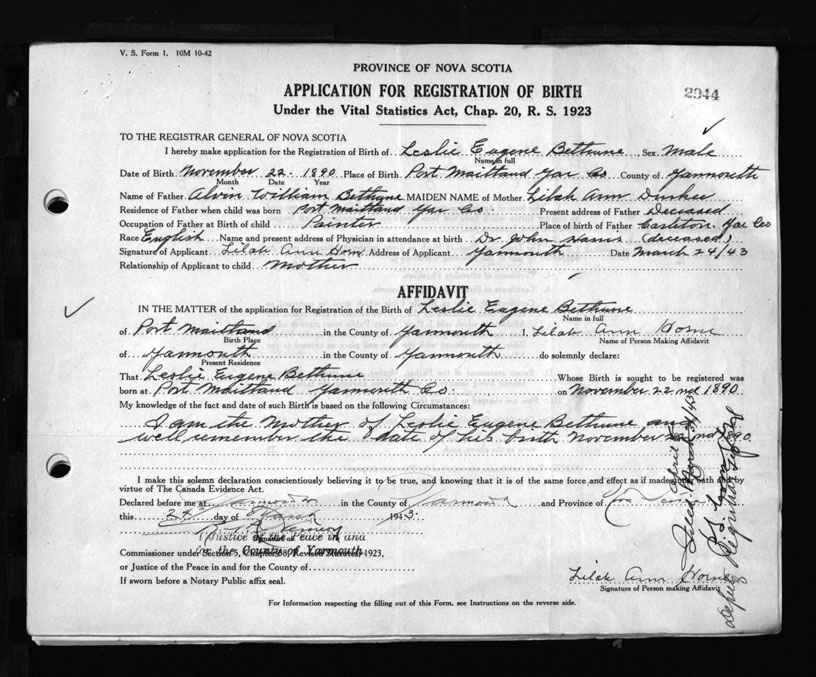 V. S. Form 1. 10M 10-42
PROVINCE OF NOVA SCOTIA
APPLICATION FOR REGISTRATION OF BIRTH
2944
Under the Vital Statistics Act, Chap. 20, R. S. 1923
TO THE REGISTRAR GENERAL OF NOVA SCOTIA
I hereby make application for the Registration of Birth of Leslie Eugene Bethune Sex Male
Name in full
Date of Birth November 22. 1890 Place of Birth Port Maitland Yar Co County of Yarmouth
Month Date Year
Name of Father Alvin William Bethune MAIDEN NAME of Mother Lilah Ann Durkee
Residence of Father when child was born Port Maitland Yar Co Present address of Father Deceased
Occupation of Father at Birth of child Painter Place of birth of Father Carleton Yar Co
Race English Name and present address of Physician in attendance at birth Dr John Harris (deceased)
Signature of Applicant Lilah Ann Horne Address of Applicant Yarmouth Date March 24/43
Relationship of Applicant to child Mother
AFFIDAVIT
IN THE MATTER of the application for Registration of the Birth of Leslie Eugene Bethune
Name in full
of Port Maitland in the County of Yarmouth I, Lilah Ann Horne
Birth Place Name of Person Making Affidavit
of Yarmouth in the County of Yarmouth do solemnly declare:
Present Residence
That Leslie Eugene Bethune Whose Birth is sought to be registered was
born at Port Maitland Yarmouth Co. on November 22nd 1890
My knowledge of the fact and date of such Birth is based on the following Circumstances:
I am the Mother of Leslie Eugene Bethune and
well remember the date of his birth November 22nd 1890.
I make this solemn declaration conscientiously believing it to be true, and knowing that it is of the same force and effect as if made under oath and by
virtue of The Canada Evidence Act.
Declared before me at Yarmouth in the County of Yarmouth and Province of Nova Scotia
this 24 day of March 1943.
A Justice of the Peace in and
for the County of Yarmouth
Commissioner under Section 5, Chapter 38, Revised Statutes 1923,
or Justice of the Peace in and for the County of
If sworn before a Notary Public affix seal.
Lilah Ann Horne
Signature of Person making Affidavit
For Information respecting the filling out of this Form, see Instructions on the reverse side.
Filed April
Deputy Registrar